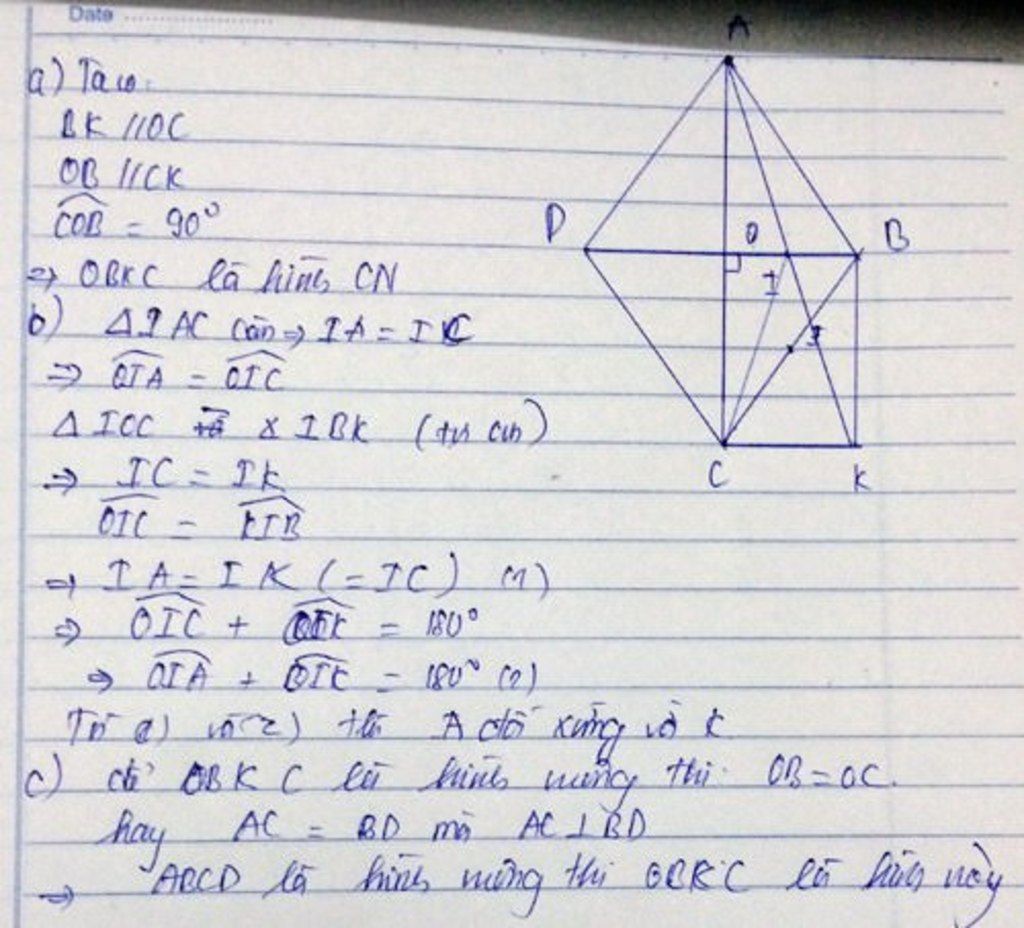 Date
a) Ta có:
BK // OC
OB // CK
COB = 90°
=> OBKC là hình CN
b) Δ IAC cân => IA = IC
=> OIA = OIC
Δ IOC = Δ IBK
=> IC = IK
OIC = KIB
=> IA = IK (= IC) (1)
=> OIC + OIK = 180°
=> OIA + OIK = 180° (2)
Từ 1) và 2) thì A đối xứng với K
c) để OBKC là hình vuông thì OB = OC.
hay AC = BD mà AC ⊥ BD
=> ABCD là hình vuông thì OBKC là hình này
A
D
O
B
I
I
C
K